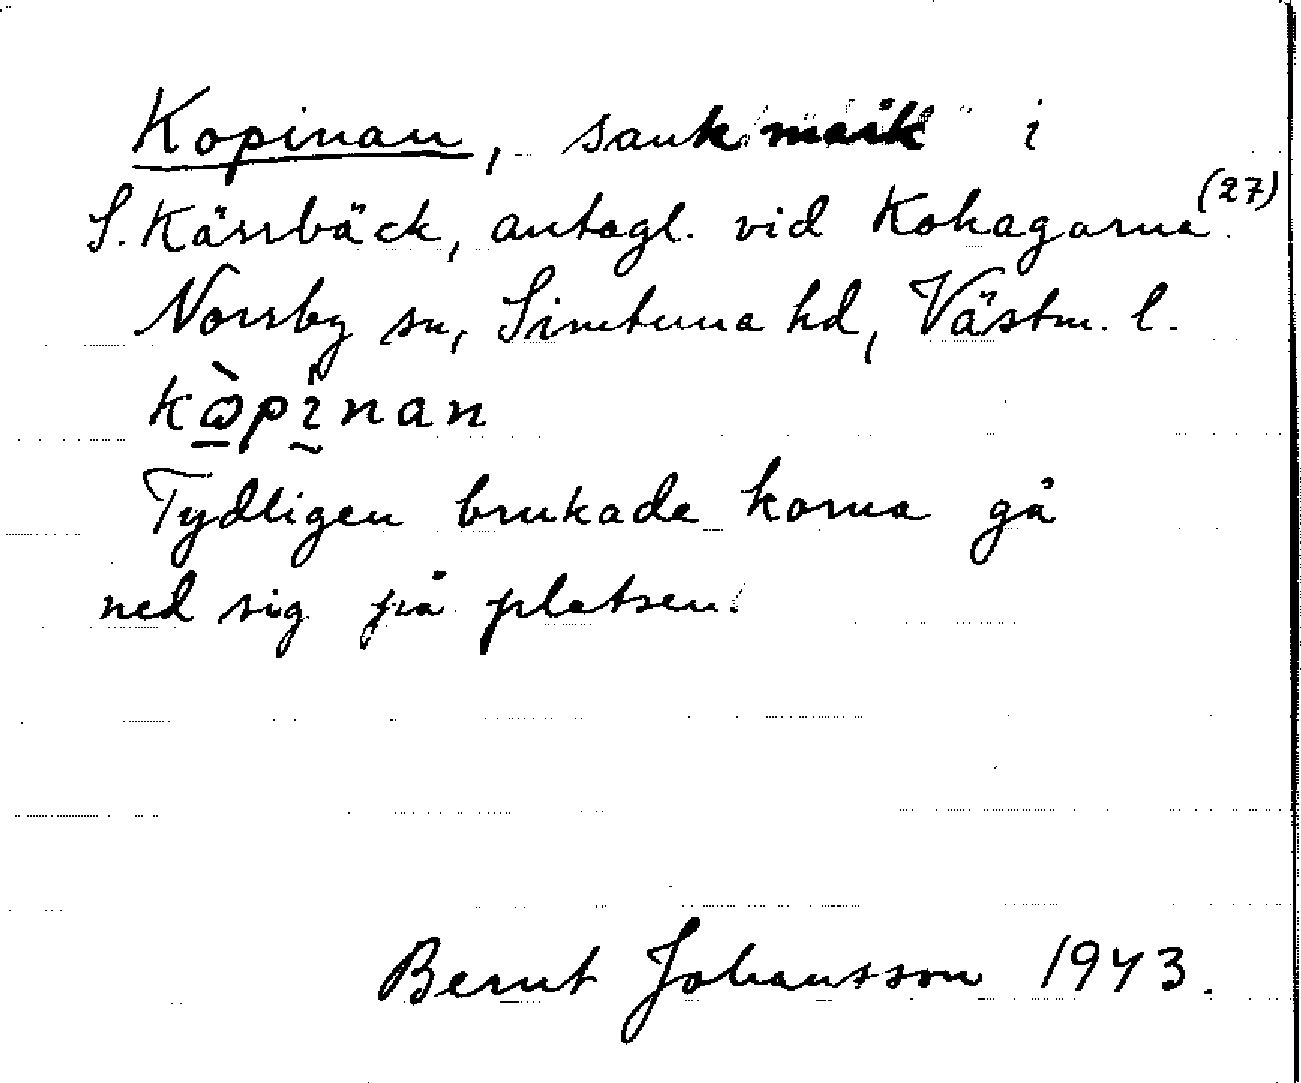 Kopinan, sank mark i
S. Kärrbäck, antagl. vid Kohagarna (27)
Norrby sn, Simtuna hd, Västm. l.
kὼpinan
Tydligen brukade korna gå
ned sig på platsen.
Bernt Johansson 1943.